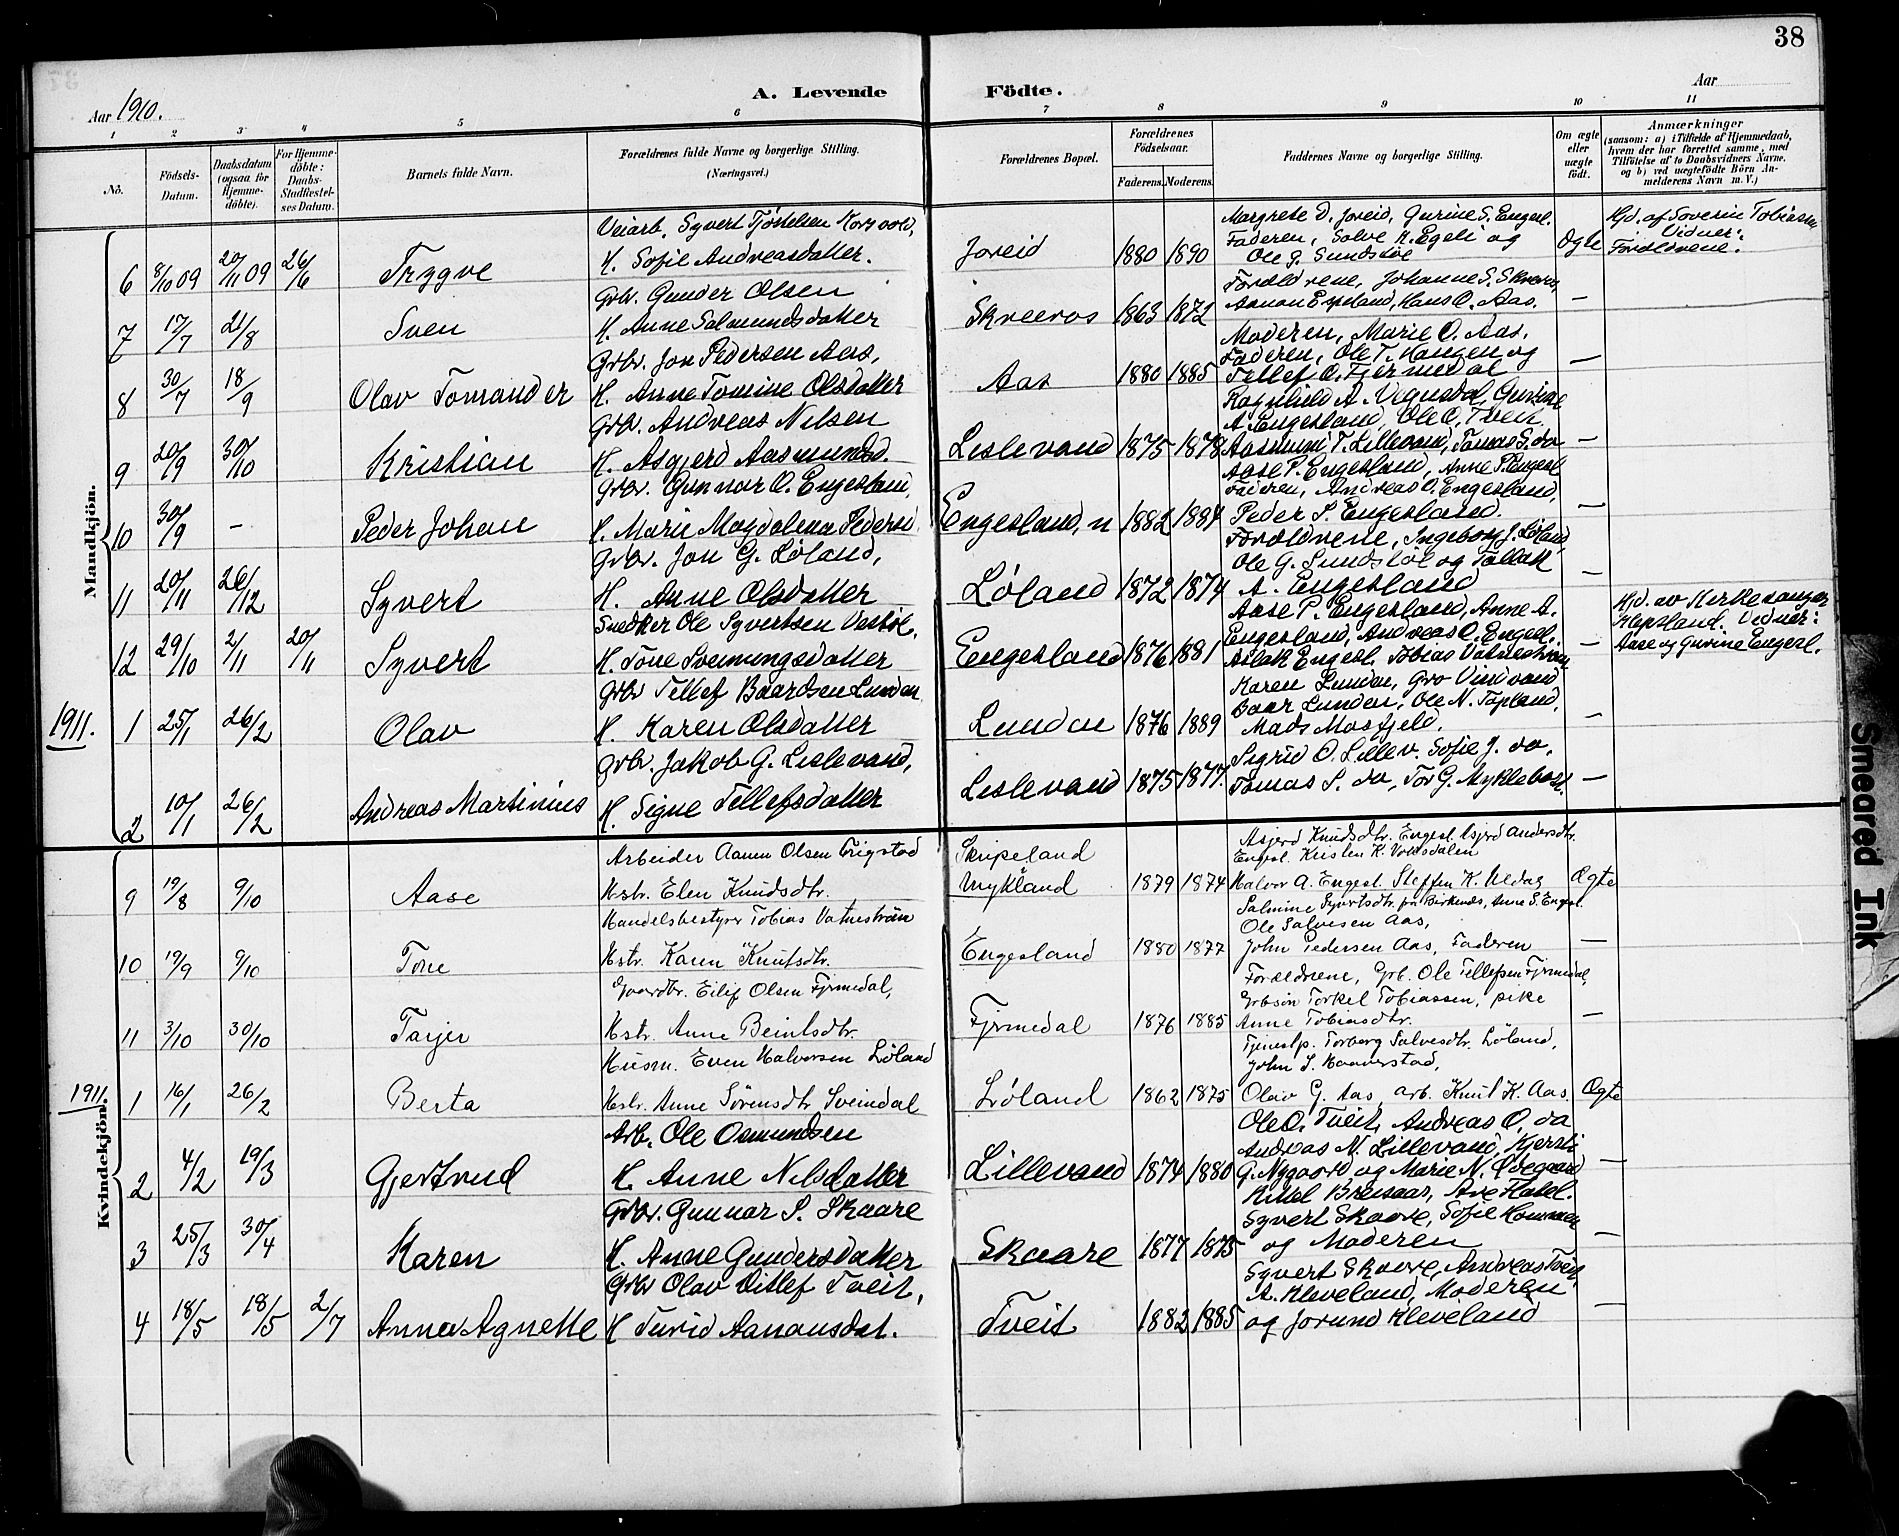 38
Aar 1910. A. Levende Födte. Aar
1 2 3 4 5 6 7 8 9 10 11
No.
Födsels-Datum.
Daabsdatum (ogsaa for Hjemme-döbte).
For Hjemme-döbte: Daabs-Stadfæstel-ses Datum.
Barnets fulde Navn.
Forældrenes fulde Navne og borgerlige Stilling.
(Næringsvei.)
Forældrenes Bopæl.
Forældrenes Födselsaar.
Faderens. Moderens.
Faddernes Navne og borgerlige Stilling.
Om ægte eller uægte födt.
Anmærkninger
(saasom: a) i Tilfælde af Hjemmedaab, hvem der har forrettet samme, med Tilföielse af to Daabsvidners Navne, og b) ved uægtefödte Börn Anmelderens Navn m. V.)
Mandkjön.
6 8/10 09 20/11 09 26/6 Trygve
Veiarb. Syvert Tjöstelsen
K. Sofie Andreasdatter.
Joreid 1880 1890
Margrete D. Joreid, Gurine S. Engesl.
Faderen, Salve K. Egeli og
Ole G. Sundstöl
Ogte
Hjd. af Soverin Tobiassen
Vidner:
Forældrene.
7 17/7 21/8 Sven
Grbr. Gunder Olsen
K. Anne Salmundsdatter
Skreeros 1863 1872
Forældrene, Johanne S. Skreeros
Aanon Espeland, Hans O. Aas. —
8 30/7 18/9 Olav Tomander
Grbr. Jon Pedersen Aas,
K. Anne Tomine Olsdatter
Aas 1880 1885
Moderen, Marie O. Aas,
Faderen, Ole T. Haugen og
Tellef O. Fjermedal —
9 20/9 30/10 Kristian
Grbr. Andreas Nilsen
K. Asgjerd Aasmundsd.
Lislevand 1875 1878
Ragnhild A. Vegusdal, Gurine
A. Engesland, Ole O. Tveit
Aasmund T. Lillevand, Tomas S. do —
10 30/9 - Peder Johan
Grbr. Gunnar O. Engesland,
K. Marie Magdalena Pedersd
Engesland, n 1882 1884
Aase P. Engesland, Anne P. Engesl
Faderen, Andreas O. Engesland,
Peder P. Engesland. —
11 20/11 26/12 Syvert
Grbr. Jon G. Löland,
K. Anne Olsdatter
Löland 1872 1874
Forældrene, Ingeborg J. Löland,
Ole G. Sundstöl og Tallak
A. Engesland —
12 29/10 2/11 20/11 Syvert
Snedker Ole Syvertsen Vestöl.
K. Tone Sveinungsdatter
Engesland 1876 1881
Aase P. Engesland, Anne A.
Engesland, Andreas O. Engesl.
Aslak Engesl. Tobias Vatnestrøm —
Hjd. av Kirkesanger
Klepsland. Vidner:
Aase og Gurine Engesl.
1911. 1 25/1 26/2 Olav
Grbr Tellef Baardsen Lunden
K. Karen Olsdatter
Lunden 1876 1889
Karen Lunden, Gro Vindvand
Baar Lunden, Ole N. Topland,
Mads Mosfjeld. —
2 10/1 26/2 Andreas Martinius
Grbr. Jakob G. Lislevand,
K. Signe Tellefsdatter
Lislevand 1875 1877
Sigrid O. Lillev. Sofie J. do,
Tomas S. do, Tor G. Myklebost. —
Kvindekjön.
9 19/8 9/10 Aase
Arbeider Aanen Olsen Trigstad
Hstr. Elen Knudsdtr.
Skripeland
Mykland 1879 1874
Asjerd Knudsdtr. Engesl. Asjerd Andersdtr.
Engesl. Kristen K. Voksdalen
Halvor A. Engesl. Steffen K. Uedag Ægte
10 19/9 9/10 Tone
Handelsbestyrer Tobias Vatneström
Hstr. Karen Knutsdtr.
Engesland 1880 1877
Salmine Syvertsdtr. på Birkenes, Anne S. Engesl.
Ole Salvesen Aas,
John Pedersen Aas, Faderen —
11 3/10 30/10 Tarjei
Gaardbr. Eilif Olsen Fjrmedal,
Hstr. Anne Beintsdtr.
Fjrmedal 1876 1885
Forældrene, Grb. Ole Tellefsen Fjrmedal,
Grbsön Torkel Tobiassen, pike
Anne Tobiasdtr. —
1911. 1 16/1 26/2 Berta
Husm. Even Halvorsen Löland
Hstr. Anne Sörensdtr Sveindal
Löland 1862 1875
Tjenestp. Torborg Salvesdtr. Löland,
John S. Haaverstad,
Olav G. Aas, arb. Knut K. Aas. Ægte
2 4/2 19/3 Gjertrud
Arb. Ole Osmundsen
K. Anne Nilsdatter
Lillevand 1874 1880
Ole O. Tveit, Andreas O, do
Andreas N. Lillevand, Kjersti
G. Nygaard og Marie N. Ødegaard —
3 25/3 30/4 Karen
Grbr. Gunnar S. Skaare
K. Anne Gundersdatter
Skaare 1877 1875
Kittel Breisaas, Ave Flatel.
Syvert Skaare, Sofie Hommen
og Moderen —
4 18/5 18/5 2/7 Anna Agnette
Grbr Olav Ditlef Tveit,
K Turid Aanonsdat.
Tveit 1882 1885
Syvert Skaare, Andreas Tveit,
A. Kleveland, Moderen
og Jorund Kleveland —
Smeared Ink